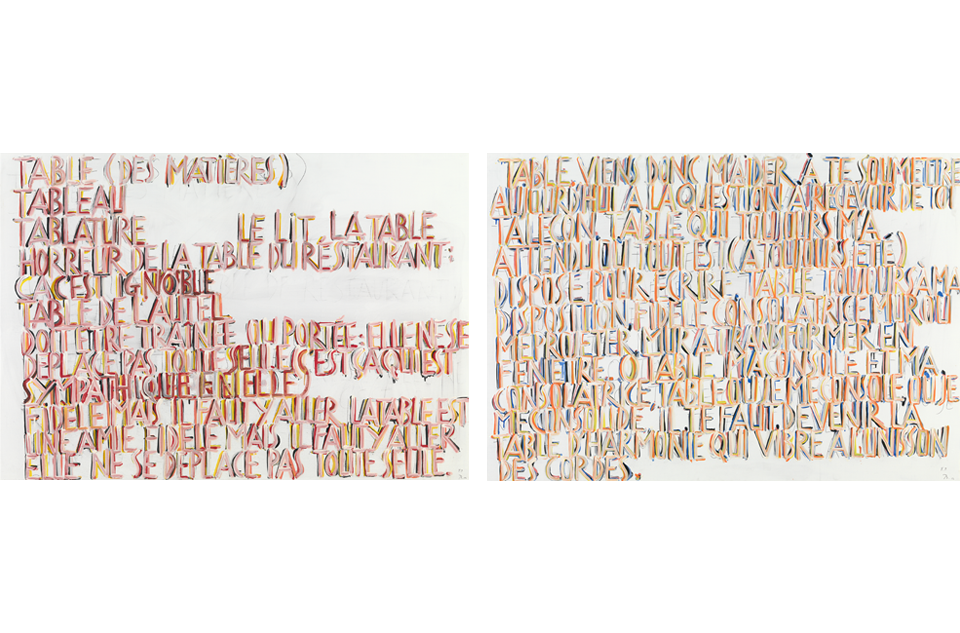 TABLE (DES MATIÈRES)
TABLEAU
TABLATURE LE LIT LA TABLE
HORREUR DE LA TABLE DU RESTAURANT:
ÇA C'EST IGNOBLE
TABLE DE L'AUTEL
DOIT ETRE TRAINEE OU PORTÉE: ELLE NE SE
DEPLACE PAS TOUTE SEULE (C'EST ÇA QUI EST
SYMPATHIQUE EN ELLE)
FIDELE MAIS IL FAUT Y ALLER LA TABLE EST
UNE AMIE FIDELE MAIS IL FAUT Y ALLER
ELLE NE SE DEPLACE PAS TOUTE SEULE.
TABLE VIENS DONC M'AIDER À TE SOUMETTRE
AUJOURD'HUI A LA QUESTION A RECEVOIR DE TOI
TA LEÇON TABLE QUI TOUJOURS M'A
ATTENDU OU TOUT EST (A TOUJOURS ETÉ)
DISPOSÉ POUR ECRIRE TABLE TOUJOURS À MA
DISPOSITION FIDELE CONSOLATRICE MUR OU
ME PROJETER MUR A TRANSFORMER EN
FENETRE O TABLE MA CONSOLE ET MA
CONSOLATRICE TABLE OU JE ME CONSOLE OU JE
ME CONSOLIDE IL TE FAUT DEVENIR LA
TABLE D'HARMONIE QUI VIBRE A L'UNISSON
DES CORDES.